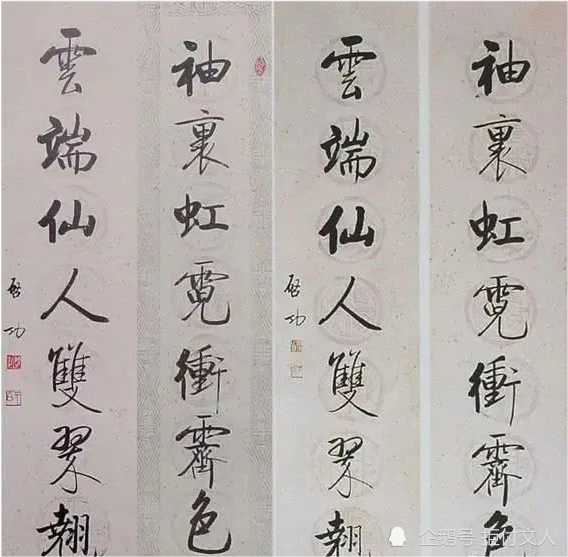 袖裏虹霓衝霽色
雲端仙人雙翠翹
啓功
袖裏虹霓衝霽色
雲端仙人雙翠翹
啓功
企鹅号
文人